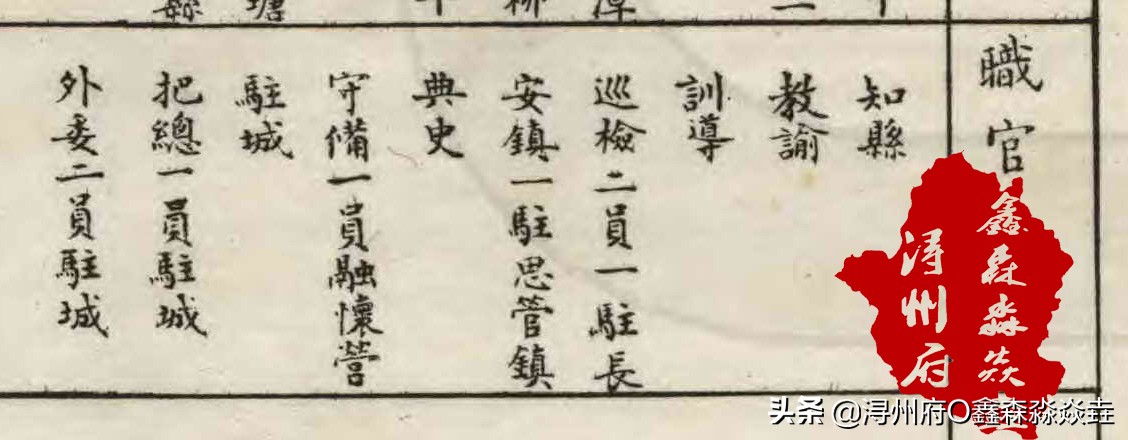 職官
知縣
教諭
訓導
巡檢二員一駐長
安鎮一駐思管鎮
典史
守備一員融懷營
駐城
把總一員駐城
外委二員駐城
鑫森淼焱垚
浔州府
头条 @浔州府O鑫森淼焱垚